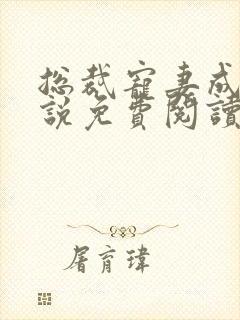 总裁寵妻成
說免費閱讀
屠育瑋